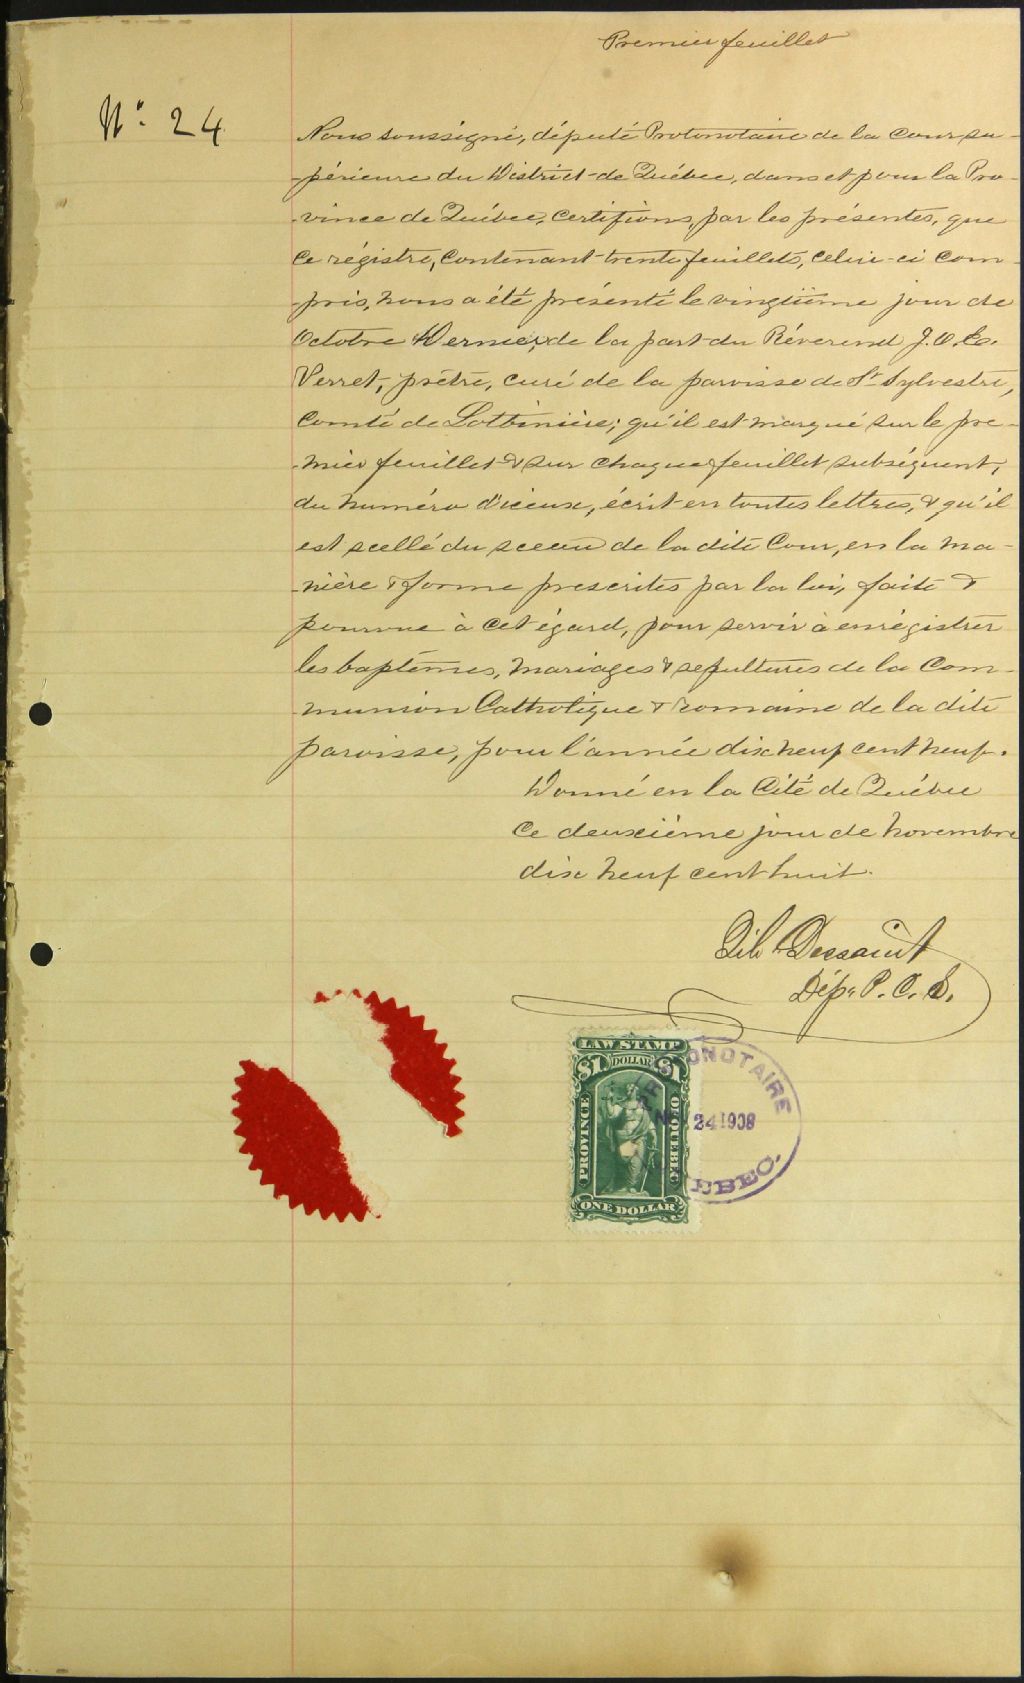 Premier feuillet
No. 24
Nous soussigné, député Protonotaire de la cour su-
-périeure du District de Québec, dans et pour la Pro-
-vince de Québec, certifions, par les présentes, que
ce régistre, contenant trente feuillets, celui-ci com-
-pris, nous a été présenté le vingtième jour de
Octobre Dernier, de la part du Révérend J. O. E.
Verret, prêtre, curé de la paroisse de St Sylvestre,
comté de Lotbinière; qu'il est marqué sur le pre-
-mier feuillet & sur chaque feuillet subséquent,
du numéro d'iceux, écrit en toutes lettres, & qu'il
est scellé du sceau de la dite Cour, en la ma-
-nière & forme prescrites par la loi, faite &
pourvue à cet égard, pour servir à enrégistrer
les baptêmes, mariages & sépultures de la Com-
-munion Catholique & romaine de la dite
paroisse, pour l'année dix neuf cent neuf.
Donné en la Cité de Québec
ce deuxième jour de novembre
dix neuf cent huit.
Dessaint
Dép. P. C. S.
LAW STAMP
$1 DOLLAR $1
PROVINCE OF QUEBEC
ONE DOLLAR
PROTONOTAIRE
24 1908
QUEBEC.